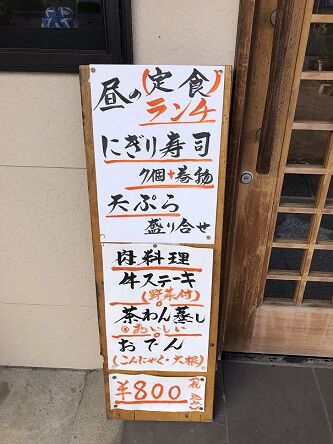 昼の(定食)
ランチ
にぎり寿司
7個+巻物
天ぷら
盛り合せ
肉料理
牛ステーキ
(野菜付)
茶わん蒸し
◎おいしい
おでん
(こんにゃく・大根)
¥800(税込み)